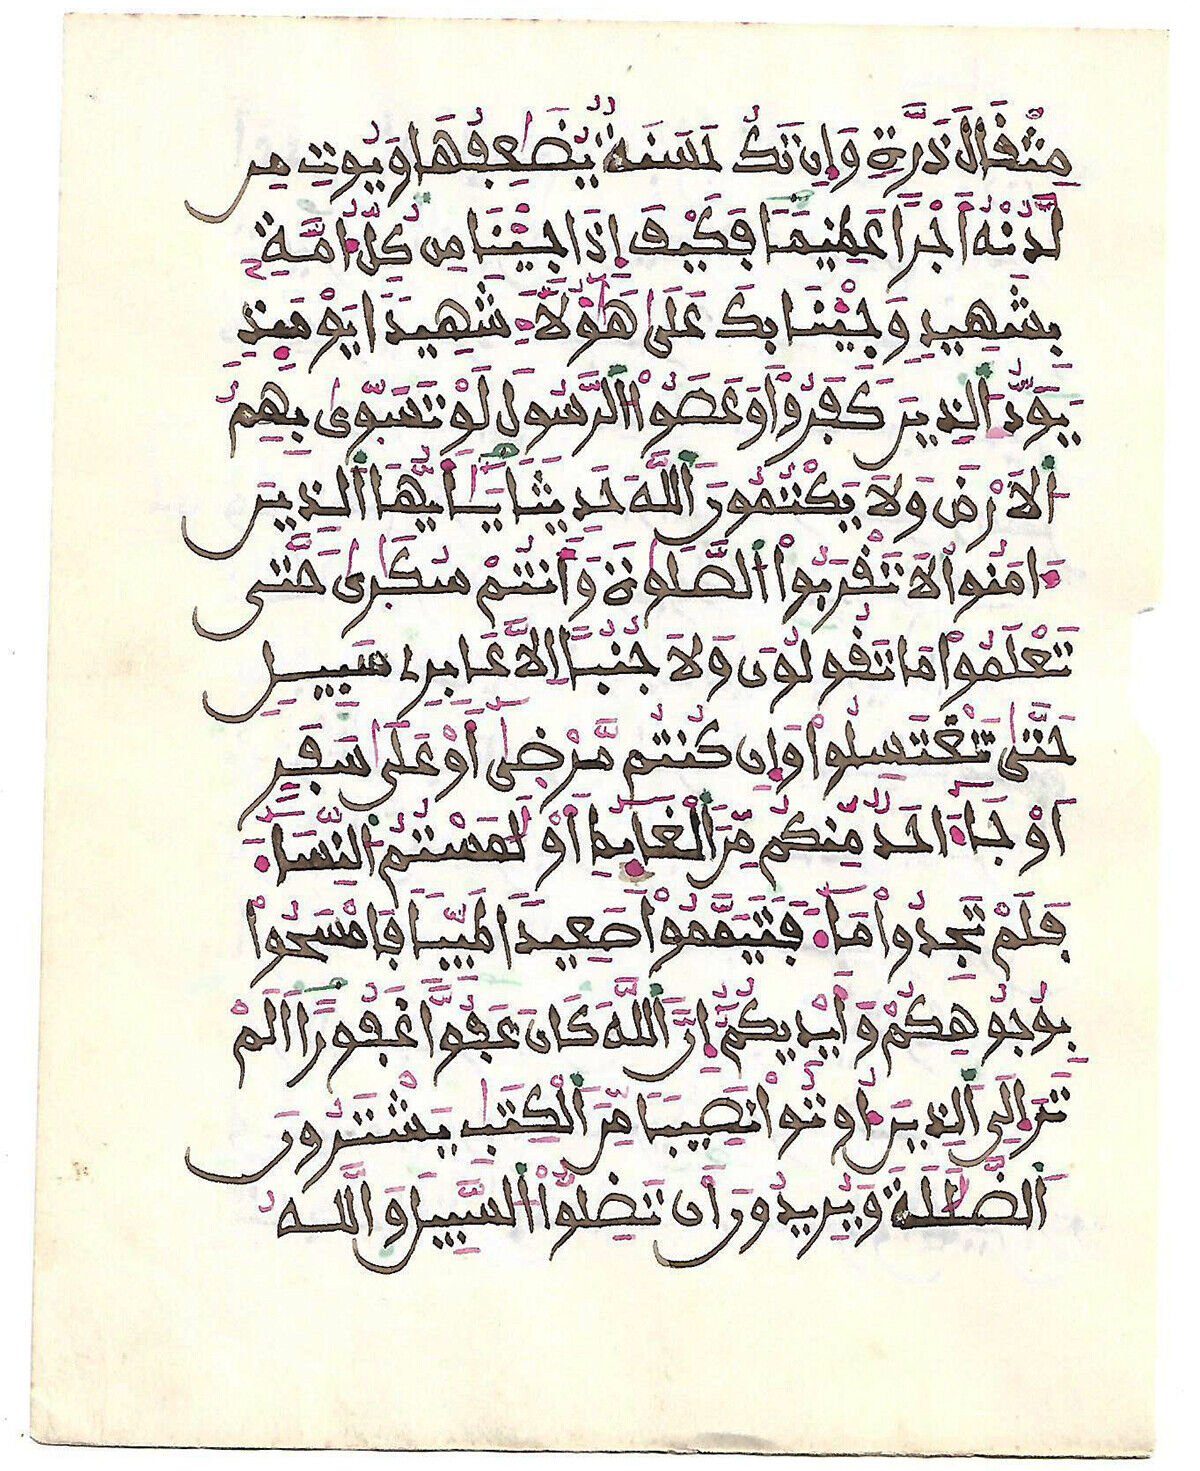 مِثْفَالَ ذَرَّةٍ وَإِن تَكُ حَسَنَةٌ يُضَٰعِڢْهَا وَيُوتِ مِں
لَّدُنْهُ أَجْراً عَظِيماً ڢَكَيْڢَ إِذَا جِيْنَا مِں كُلِّ أُمَّةِۭ
بِشَهِيدٍ وَجِيْنَا بِكَ عَلَىٰ هَٰٓؤُلَآءِ شَهِيداً يَوْمَئِذٍ
يَوَدُّ الذِيںَ كَڢَرُواْ وَعَصَوُاْ الرَّسُولَ لَوْ تَسَّوّىٰ بِهِمُ
الَارْضُ وَلَا يَكْتُمُوںَ اَللَّهَ حَدِيثاً يَٰٓأَيُّهَا اَلذِيںَ
ءَامَنُواْ لَا تَفْرَبُواْ اَلصَّلَوٰةَ وَأَنتُمْ سُكَٰرىٰ حَتَّىٰ
تَعْلَمُواْ مَا تَفُولُوںَ وَلَا جُنُباً إِلَّا عَابِرِے سَبِيلٍ
حَتَّىٰ تَغْتَسِلُواْ وَإِں كُنتُم مَّرْضِىٰٓ أَوْ عَلَىٰ سَڢَرٍ
أَوْ جَآءَ احَدٌ مِّنكُم مِّںَ اَلْغَآئِطِ أَوْ لَٰمَسْتُمُ اَلنِّسَآءَ
ڢَلَمْ تَجِدُواْ مَآءً ڢَتَيَمَّمُواْ صَعِيداً طَيِّباً ڢَامْسَحُواْ
بِوُجُوهِكُمْ وَأَيْدِيكُمُۥٓ إِںَّ اَللَّهَ كَاںَ عَڢُوّاً غَڢُوراً اَلَمْ
تَرَ إِلَى اَلذِيںَ أُوتُواْ نَصِيباً مِّںَ اَلْكِتَٰبِ يَشْتَرُوںَ
اَلضَّلَٰلَةَ وَيُرِيدُوںَ أَں تَضِلُّواْ اَلسَّبِيلَ وَاللَّهُ